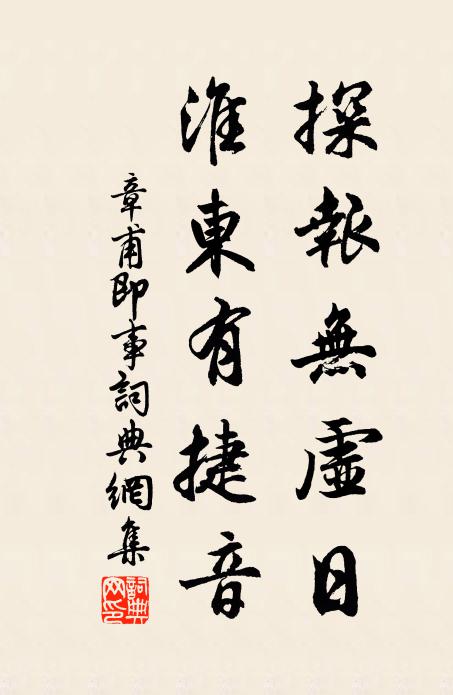 探報無虛日
淮東有捷音
章甫即事詞典網集
詞典網印